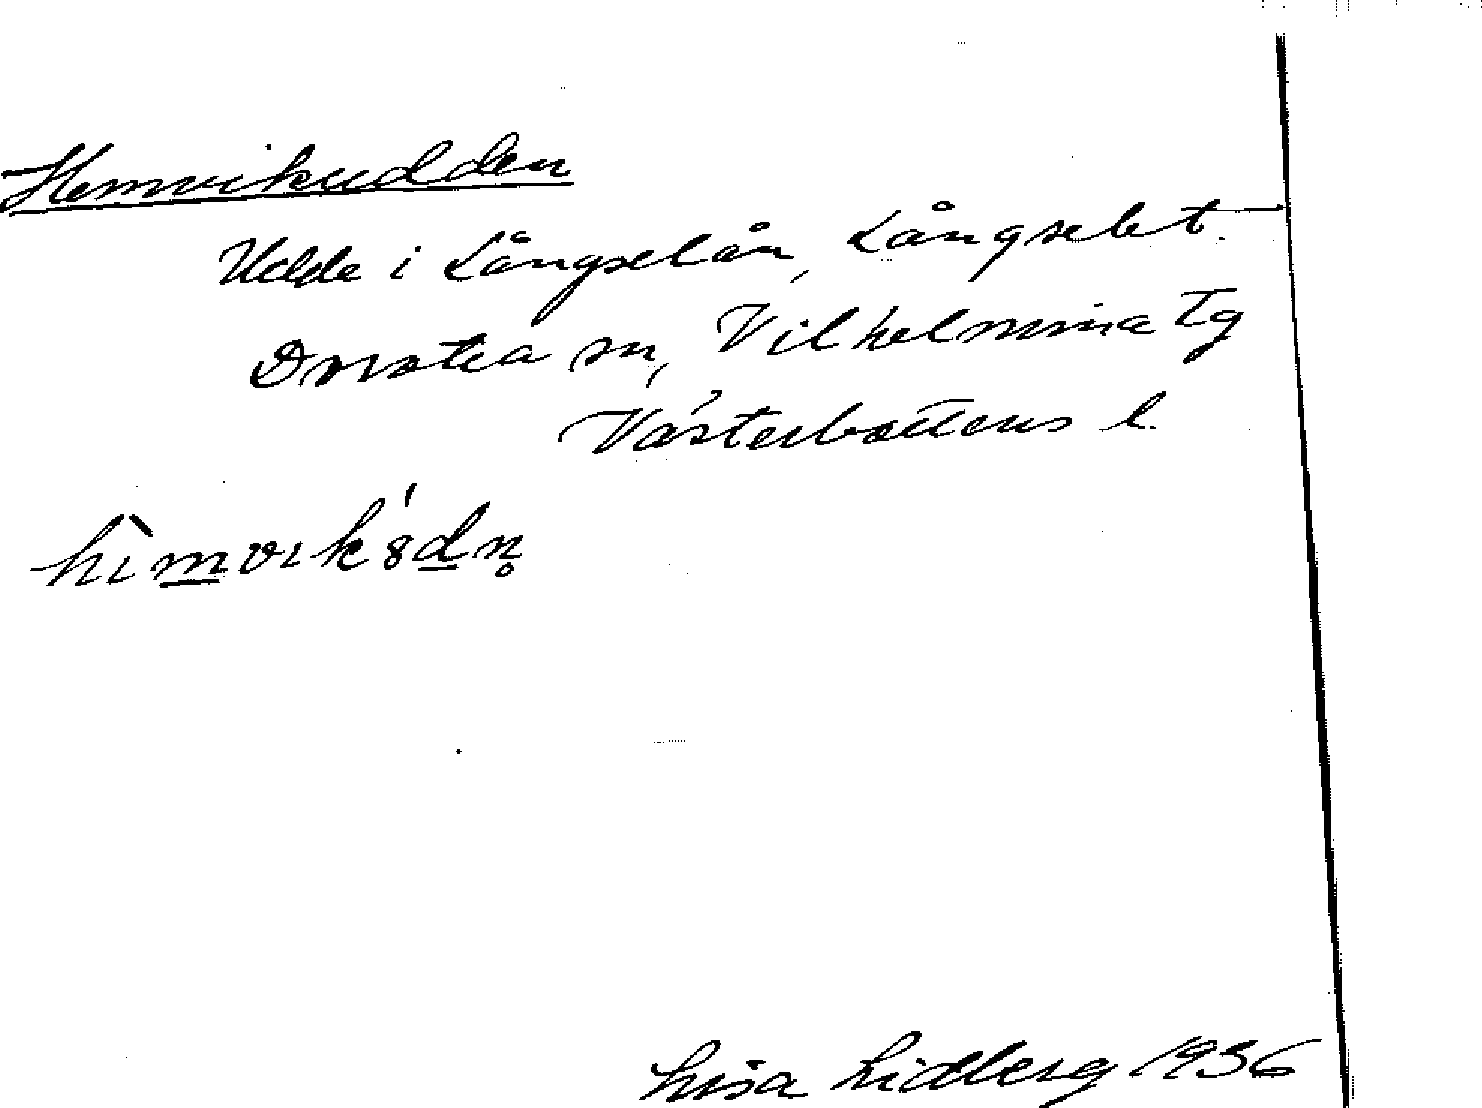 Hemvikudden
Udde i Långselån, Långselet
Dorotea sn, Vilhelmina tg
Västerbottens l.
hìmvik8́dn̥
Lisa Lidberg 1936